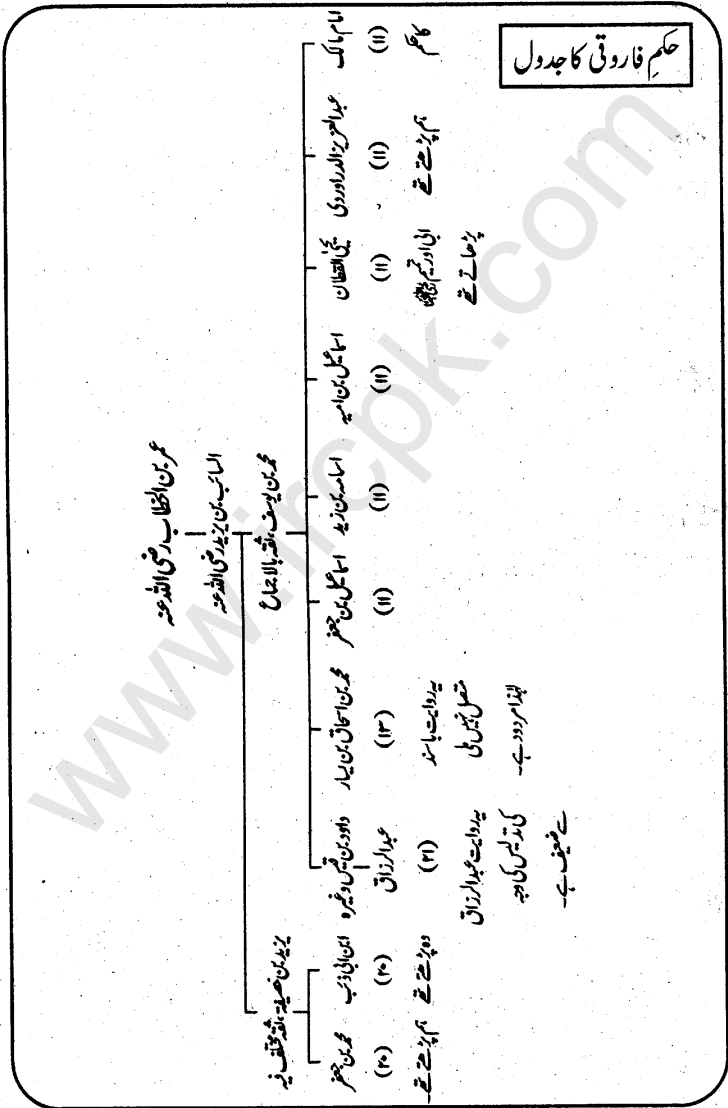 حکمِ فاروقی کا جدول
عمر بن الخطاب رضی اللہ عنہ
السائب بن یزید رضی اللہ عنہ
محمد بن یوسف، ثقہ بالاجماع
امام مالک
(۱۱)
کا حکم
عبدالعزیز الدراوردی
(۱۱)
ہم پڑھتے تھے
یحییٰ القطان
(۱۱)
ابی اور تمیم رضی اللہ عنہما
پڑھاتے تھے
اسماعیل بن امیہ
(۱۱)
اسامہ بن زید
(۱۱)
اسماعیل بن جعفر
(۱۱)
محمد بن اسحاق بن یسار
(۱۳)
یہ روایت باسند
متصل نہیں ملی
لہٰذا مردود ہے۔
داود بن قیس وغیرہ
عبدالرزاق
(۲۱)
یہ روایت عبدالرزاق
کی تدلیس کی وجہ
سے ضعیف ہے۔
یزید بن خصیفہ، ثقہ مختلف فیہ
ابن ابی ذئب
(۲۰)
وہ پڑھتے تھے
محمد بن جعفر
(۲۰)
ہم پڑھتے تھے۔
www.ircpk.com